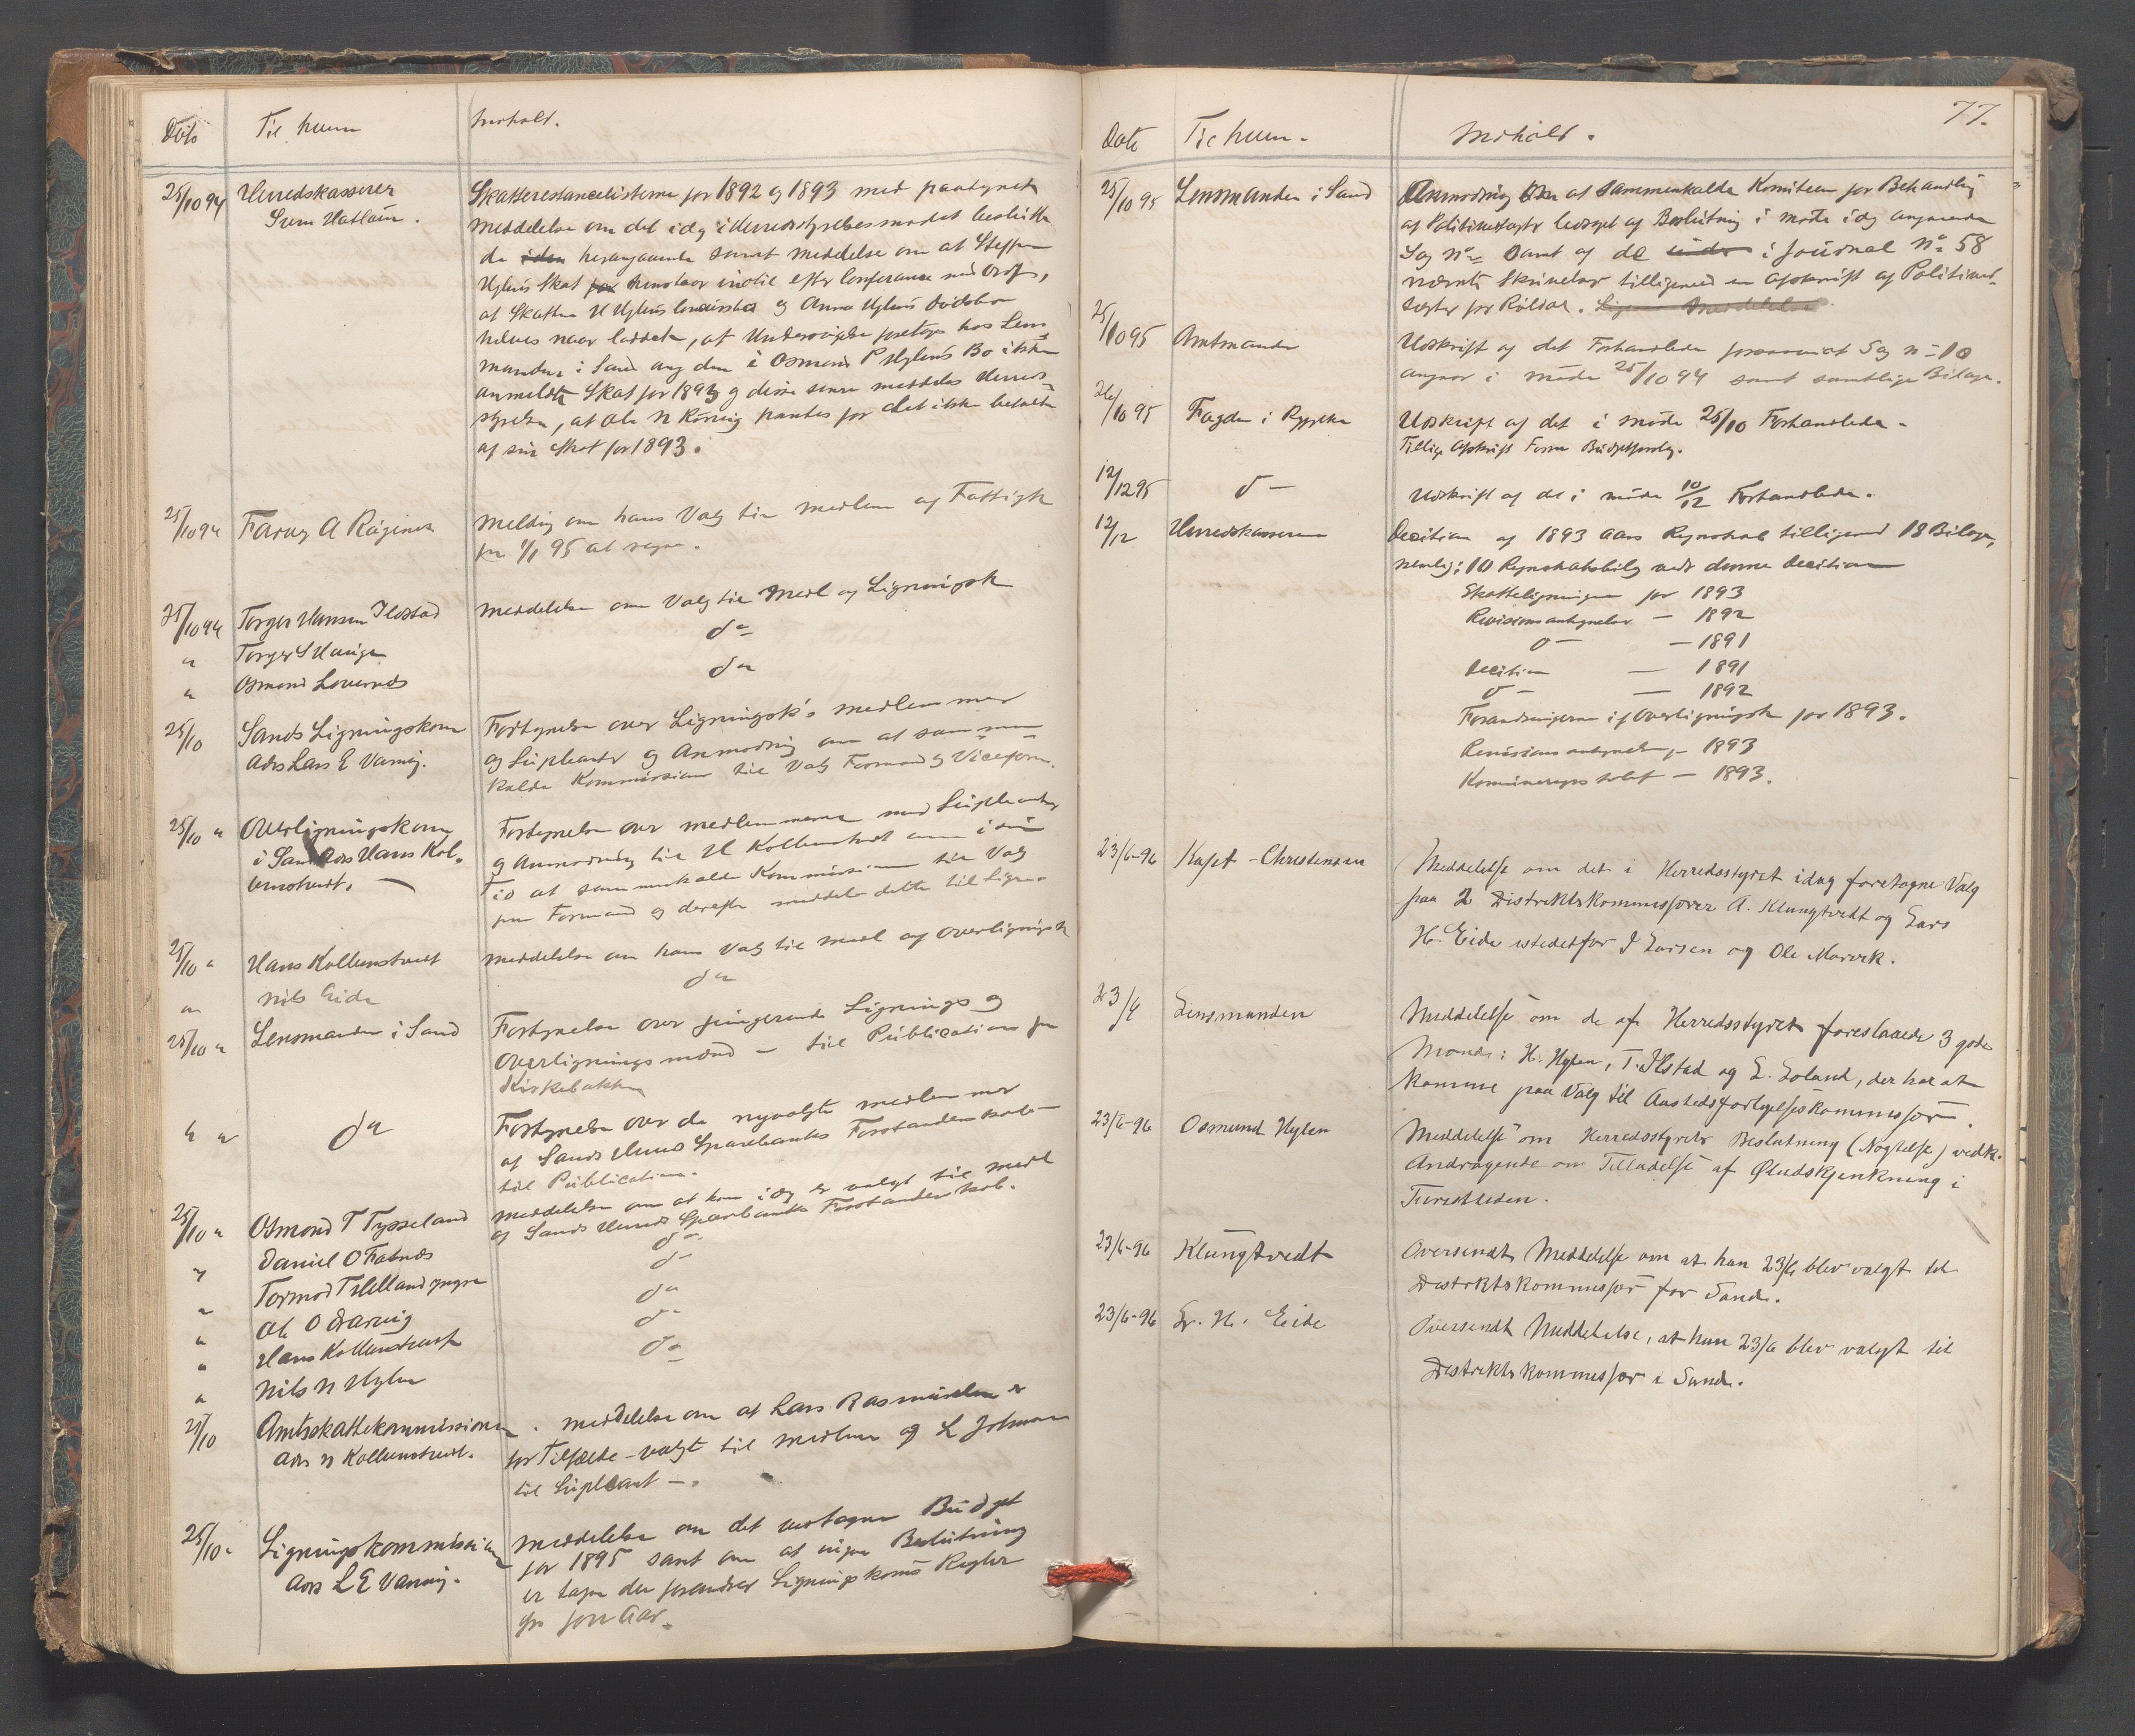 Dato
Til hvem
Indhold.
25/10 94 Herredskasserer
Skatterestancelisterne for 1892 og 1893 med paategnet
meddelelse om det idag i Herredsstyrelsesmødet beslutte
de samt meddelelse om at Steffen
Hylens Skat efter Conferance med
at Skatten og Anna Hylens
, at Undersøgelse foretages hos Lens
manden i Sand ang den i Osmund P Hylens Bo ikke
anmeldte Skat for 1893 og disse senere meddeles Herreds-
styrelsen, at Ole N pantes for det ikke betalte
af sin Skat for 1893.
25/10 94 Meldig om hans Valg til medlem af Fattigk
fra 1/1 95 at regne.
25/10 94 Torger Hansen Ilestad meddelelse om Valg til Medl af Ligningsk
" Torger do
" Osmond do
25/10 Sands Ligningskom Fortegnelse over Ligningsk's medlemmer
Adrs Lars E Varvig. og Supleanter og Anmodning om at sammen-
kalde Kommissionen til Valg Formand og Viceform.
25/10 " Overligningskom Fortegnelse over medlemmerne med Supleanter
i Sand Adrs Hans Kol- og Anmodning til H Kolbenstvedt om i sin
benstvedt. Tid at sammenkalde Kommissionen til Valg
paa Formand og derefter meddele dette til Lign-
25/10 " Hans Kolbenstvedt meddelelse om hans Valg til medl af Overligningsk
" Nils Eide do
25/10 " Lensmanden i Sand Fortegnelse over fungerende Lignings og
Overligningsmænd - til Publication paa
Kirkebakken
" " do Fortegnelse over de nyvalgte medlemmer
af Sands Herreds Sparebanks Forstanderskab
til Publication.
25/10 " Osmond T Tysseland meddelelse om at han idag er valgt til medl
af Sands Herreds Sparebanks Forstanderskab.
" Daniel O Fatnes do
" Tormod T Helland yngre do
" Ole O do
" Hans Kolbenstvedt do
" Nils N Hylen do
25/10 Amtsskattekommissionen . meddelelse om at Lars Rasmussen er
adrs N Kolbenstvedt. for Tilfælde - valgt til medlem og L Johnsen
til Supleant -.
25/10 " Ligningskommissionen meddelelse om det vedtagne Budget
Adrs L E Varvig. for 1895 samt om at ingen Beslutning
er tagen der forandrer Ligningskoms Regler
fra forr Aar.
77.
Dato Til hvem. Indhold.
25/10 95 Lensmanden i Sand Anmodning om at sammenkalde Komiteen for Behandlig
af Politivedtægter ledsaget af Beslutning i møde idag angaaende
Sag No samt af de i Journal No 58
nævnte Skrivelser tilligemed en Afskrift af Politived-
tægter for Røldal.
25/10 95 Amtmanden Udskrift af det Forhandlede forsaavidt Sag No 10
angaar i møde 25/10 94 samt samtlige Bilage.
26/10 95 Fogden i Ryfylke Udskrift af det i møde 25/10 Forhandlede.
Tillige Afskrift Budgetforslg.
12/12 95 do Udskrift af det i møde 10/12 Forhandlede.
12/12 Herredskasserer Decition af 1893 Aars Regnskab tilligemed 18 Bilage,
nemlig: 10 Regnskabsbilg vedr denne Decition
Skatteligningen for 1893
Revisionsantegnelser - 1892
do - 1891
Decition - 1891
do - 1892
Forandringerne i f Overligningsk for 1893.
Revisionsantegnelser - 1893
- 1893.
23/6-96 Kapt - Christensen Meddelelse om det i Herredsstyret idag foretagne Valg
paa 2 Distriktskommissærer A. Klungtvedt og Lars
H. Eide istedetfor J Larsen og Ole Marvik.
23/6 Lensmanden Meddelelse om de af Herredsstyret foreslaaede 3 gode
Mænd: H. Hylen, T. Ilstad og L. Løland, der har at
komme paa Valg til Aastedsforligelseskommissær.
23/6-96 Osmund Hylen Meddelelse om Herredsstyrets Beslutning (Nægtelse) vedk.
Andragende om Tilladelse af Øludskjenkning i
Turisttiden.
23/6-96 Klungtvedt Oversendt Meddelelse om at han 23/6 blev valgt til
Distriktskommissær for Sand.
23/6-96 Lr. H. Eide Oversendt Meddelelse, at han 23/6 blev valgt til
Distriktskommissær i Sand.